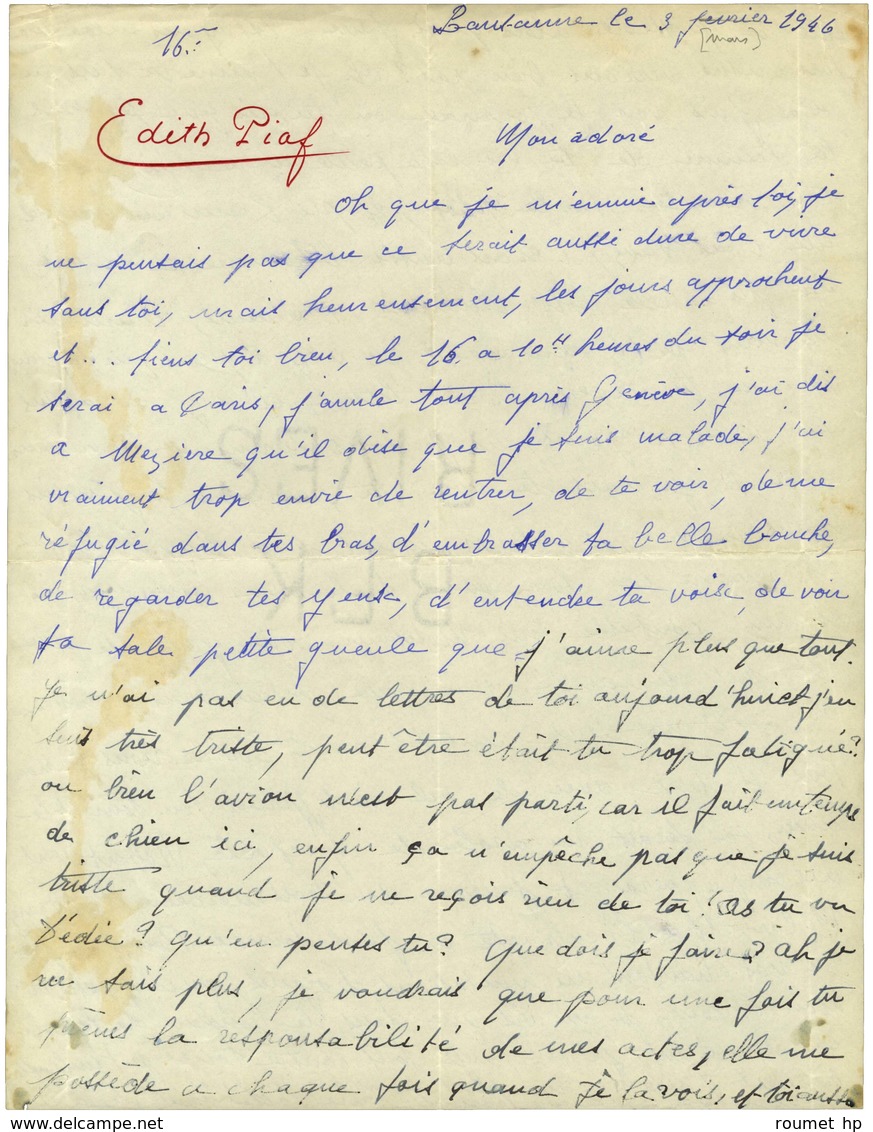 Lausanne le 3 fevrier 1946
[mars]
16.
Edith Piaf
Mon adoré
Oh que je m'ennuie après toi, je
ne pensais pas que ce serait aussi dure de vivre
sans toi, mais heureusement, les jours approchent
et... tiens toi bien, le 16 a 10 heures du soir je
serai a Paris, j'annule tout après Genève, j'ai dis
a Meziere qu'il dise que je suis malade, j'ai
vraiment trop envie de rentrer, de te voir, de me
réfugié dans tes bras, d'embrasser ta belle bouche,
de regarder tes yeux, d'entendre ta voix, de voir
ta sale petite gueule que j'aime plus que tout.
Je n'ai pas eu de lettres de toi aujourd'hui et j'en
suis très triste, peut être était tu trop fatigué?
ou bien l'avion n'est pas parti, car il fait un temps
de chien ici, enfin ça n'empêche pas que je suis
triste quand je ne reçois rien de toi! As tu vu
Dédée? qu'en penses tu? Que dois je faire? ah je
ne sais plus, je voudrais que pour une fois tu
prènes la résponsabilité de mes actes, elle me
possède a chaque fois quand je la vois, et toi aussi
roumet hp